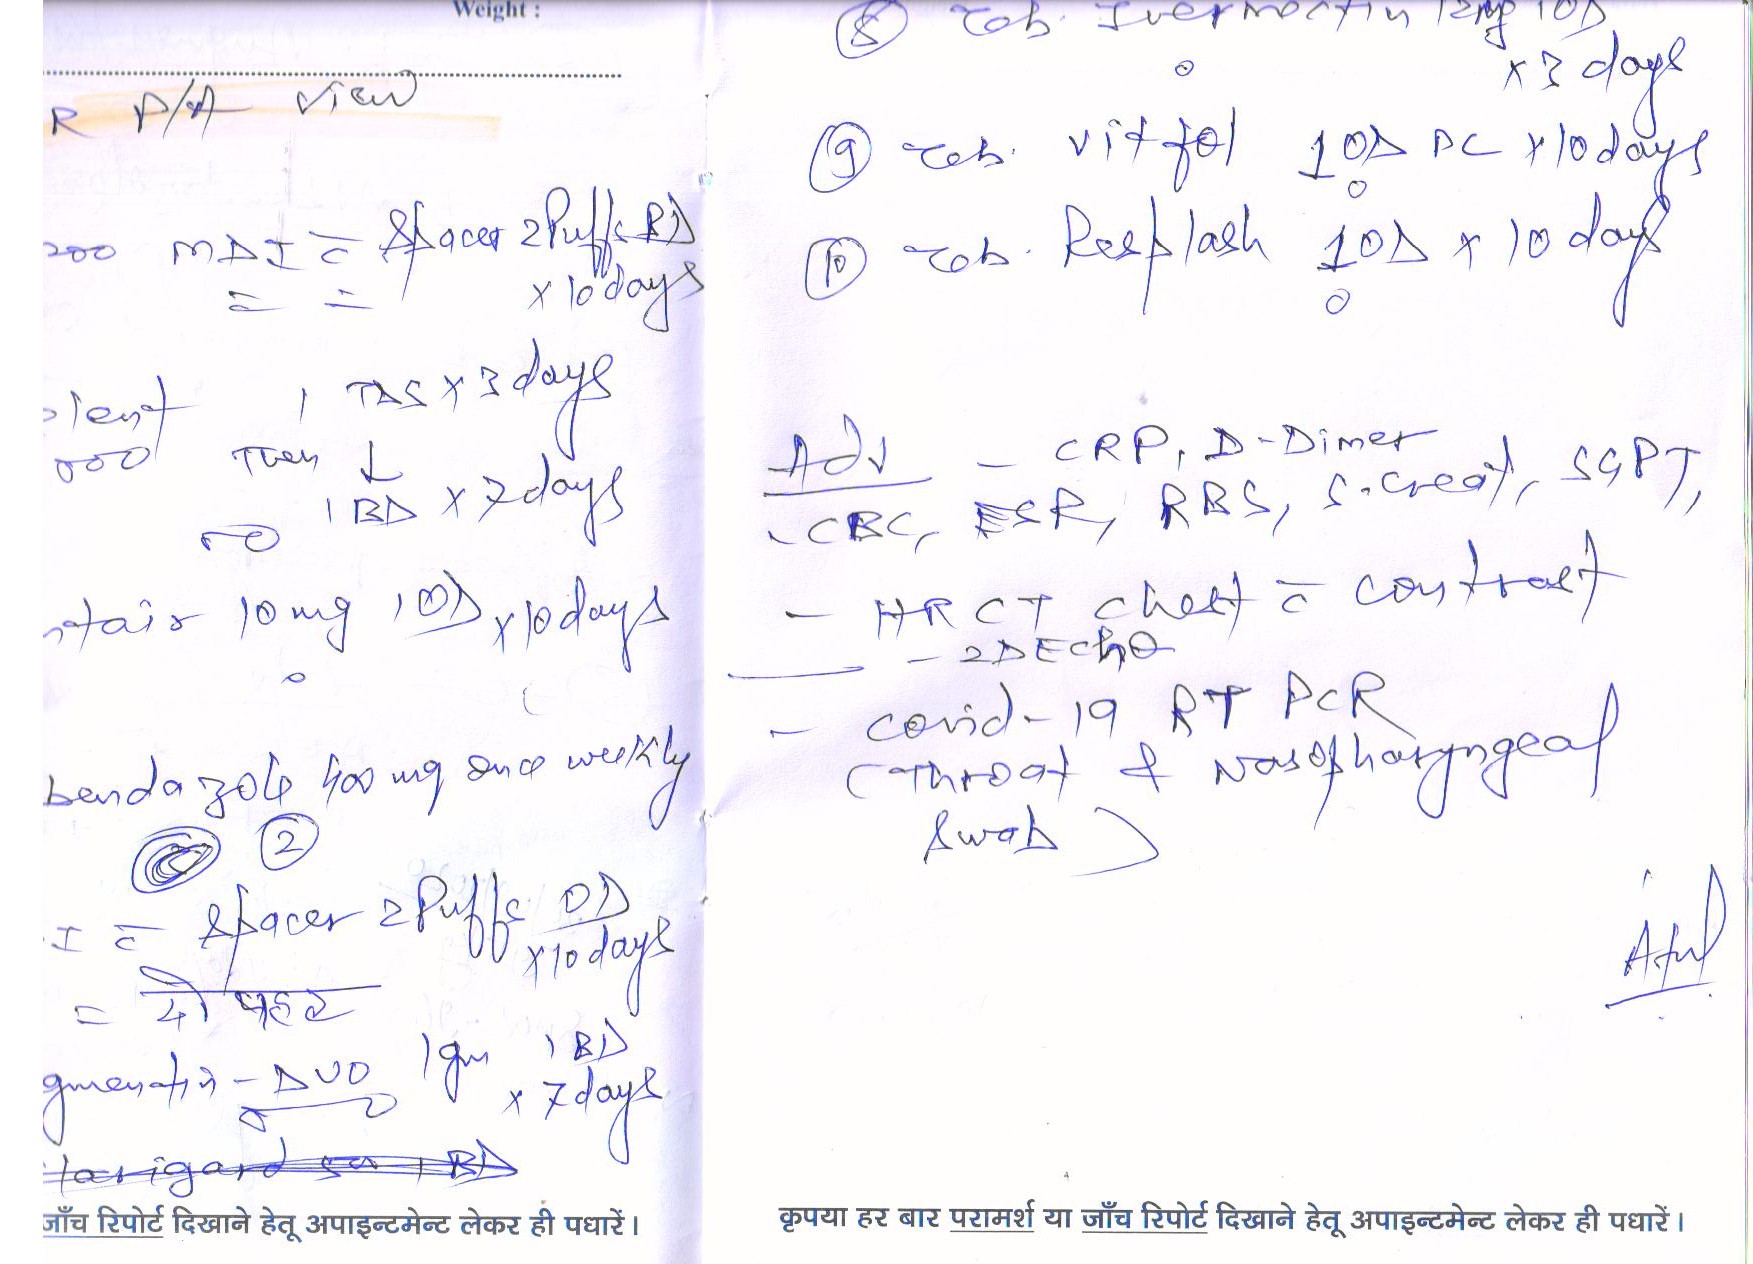 Weight :
R P/A view
200 MDI c̄ Spacer 2 Puffs BD
x 10 days
1 TDS x 3 days
000 Then ↓
1 BD x 7 days
ntair 10 mg 1 OD x 10 days
bendazole 400 mg once weekly
②
I c̄ Spacer 2 Puffs OD
x 10 days
= दोपहर
gmentin - DUO 1 gm 1 BD
x 7 days
जाँच रिपोर्ट दिखाने हेतू अपाइन्टमेन्ट लेकर ही पधारें।
⑧ Tab. Ivermectin 12mg 1OD
x 3 days
⑨ Tab. vitfol 1OD PC x 10 days
⑩ Tab. Resplash 1OD x 10 days
Adv - CRP, D-Dimer
CBC, ESR, RBS, S.Creat, SGPT,
- HRCT Chest c̄ contrast
- 2DEcho
- Covid-19 RT PCR
(Throat & Nasopharyngeal
Swab)
कृपया हर बार परामर्श या जाँच रिपोर्ट दिखाने हेतू अपाइन्टमेन्ट लेकर ही पधारें।